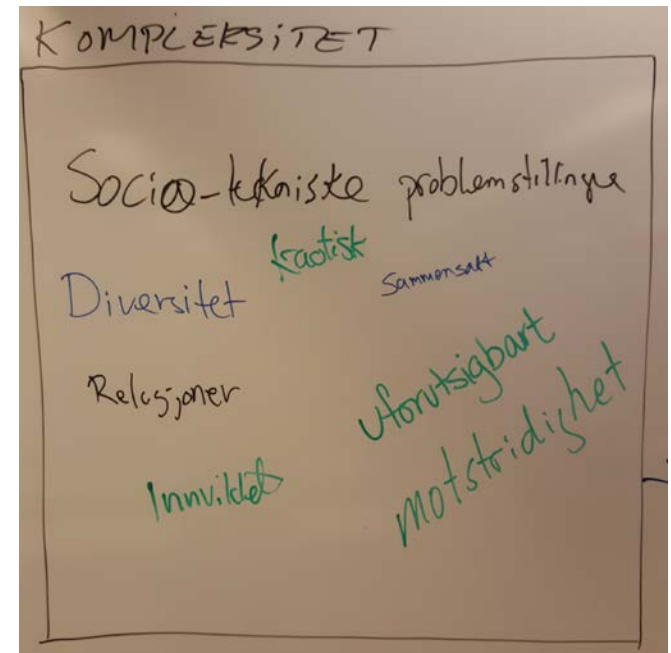 KOMPLEKSITET
Socio-tekniske problemstillinger
kaotisk
Diversitet
Sammensatt
Relasjoner
uforutsigbart
Innviklet
motstridighet